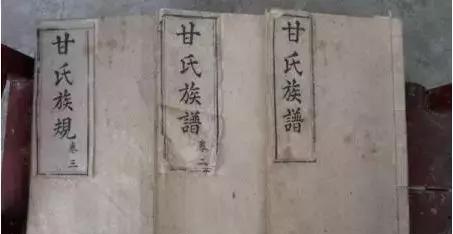 甘氏族規
卷三
甘氏族譜
卷二
甘氏族譜